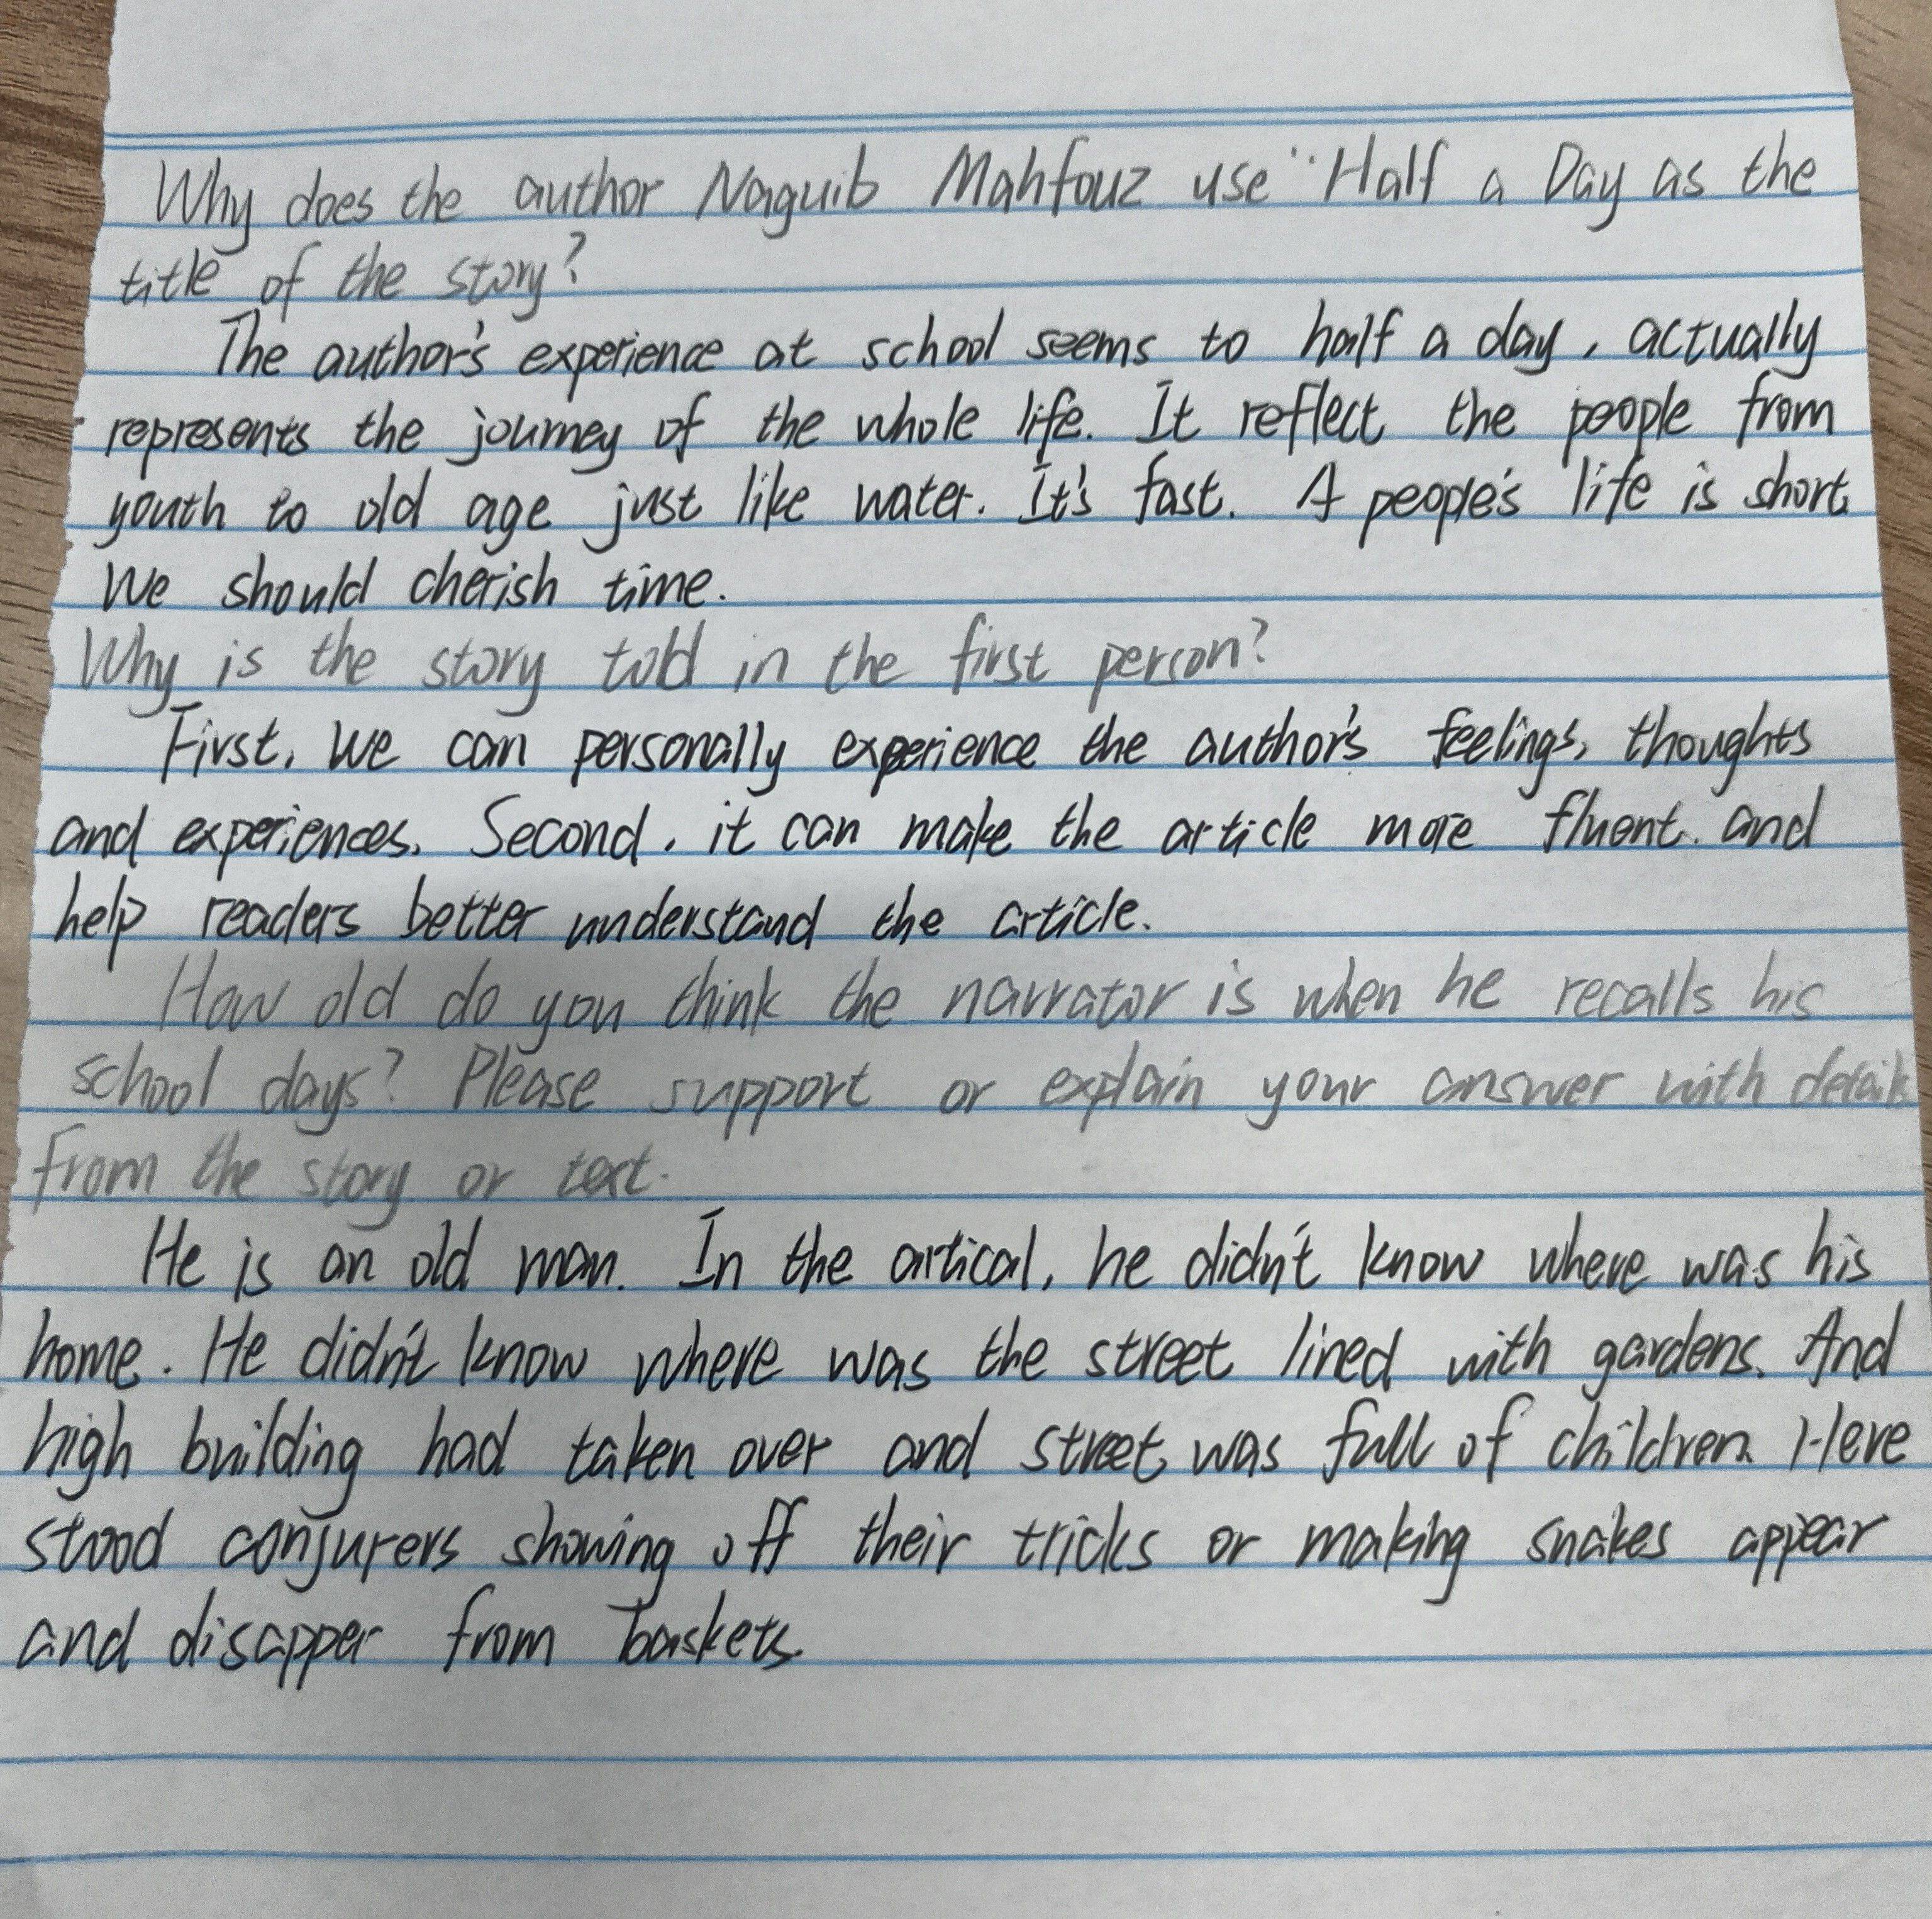 Why does the author Naguib Mahfouz use "Half a Day as the
title of the story?
The author's experience at school seems to half a day, actually
represents the journey of the whole life. It reflect the people from
youth to old age just like water. It's fast. A people's life is short.
We should cherish time.
Why is the story told in the first person?
First, we can personally experience the author's feelings, thoughts
and experiences. Second, it can make the article more fluent. and
help readers better understand the article.
How old do you think the narrator is when he recalls his
school days? Please support or explain your answer with details
from the story or text.
He is an old man. In the artical, he didn't know where was his
home. He didn't know where was the street lined with gardens. And
high building had taken over and street was full of children. Here
stood conjurers showing off their tricks or making snakes appear
and disapper from baskets.